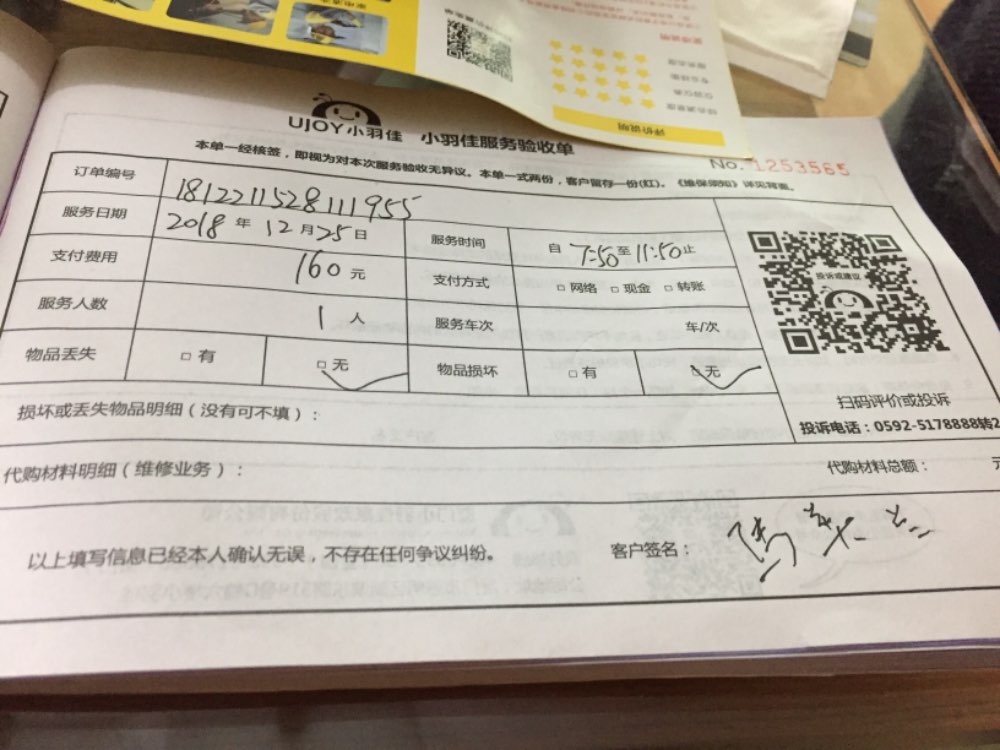 评价说明
UJOY小羽佳 小羽佳服务验收单
No. 1253565
本单一经核签，即视为对本次服务验收无异议。本单一式两份，客户留存一份(红)。《维保须知》详见背面。
订单编号 181221152811955
服务日期 2018 年 12 月 25 日 服务时间 自 7:50 至 11:50 止
支付费用 160 元 支付方式 □ 网络 □ 现金 □ 转账
服务人数 1 人 服务车次 车/次
物品丢失 □ 有 □ 无 物品损坏 □ 有 □ 无
投诉或建议
扫码评价或投诉
投诉电话：0592-5178888转2
损坏或丢失物品明细（没有可不填）：
代购材料明细（维修业务）： 代购材料总额： 元
以上填写信息已经本人确认无误，不存在任何争议纠纷。 客户签名：